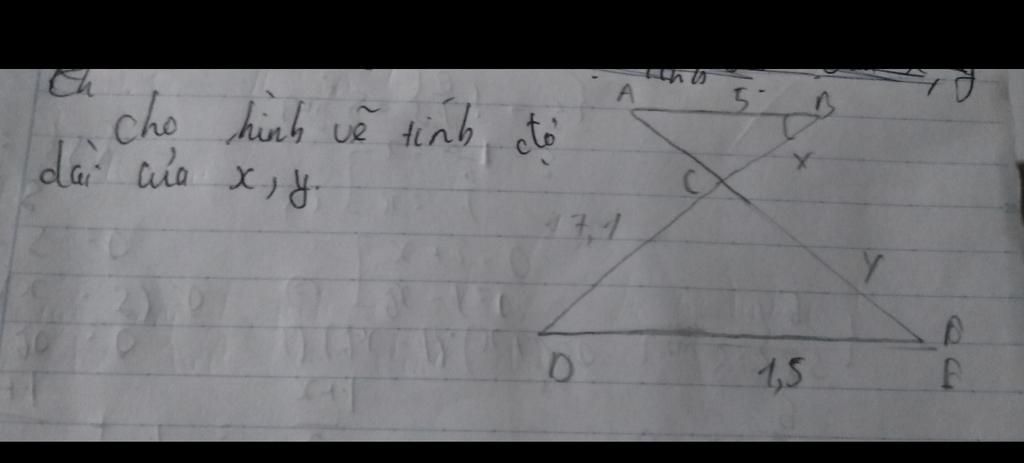 A 5 B
cho hình vẽ tính độ
dài của x, y.
x
C
17,1
y
D 1,5
E